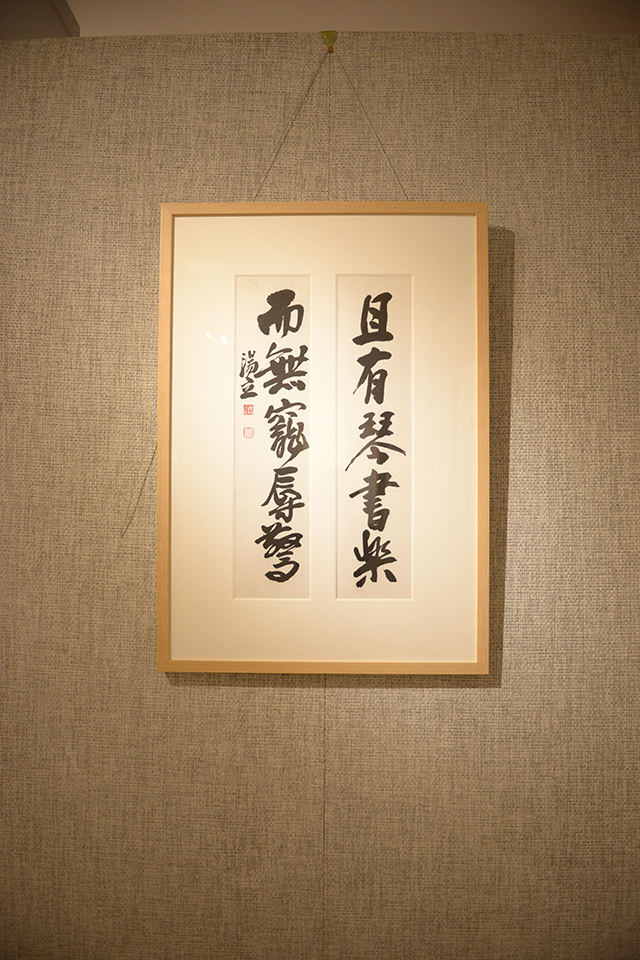 且有琴書樂
而無寵辱驚
湯立